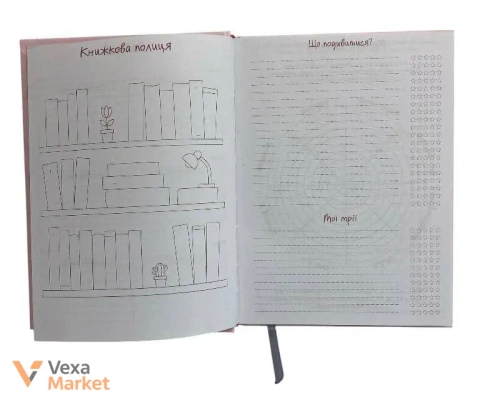 Книжкова полиця
Що подивитися?
Мої мрії
Vexa
Market